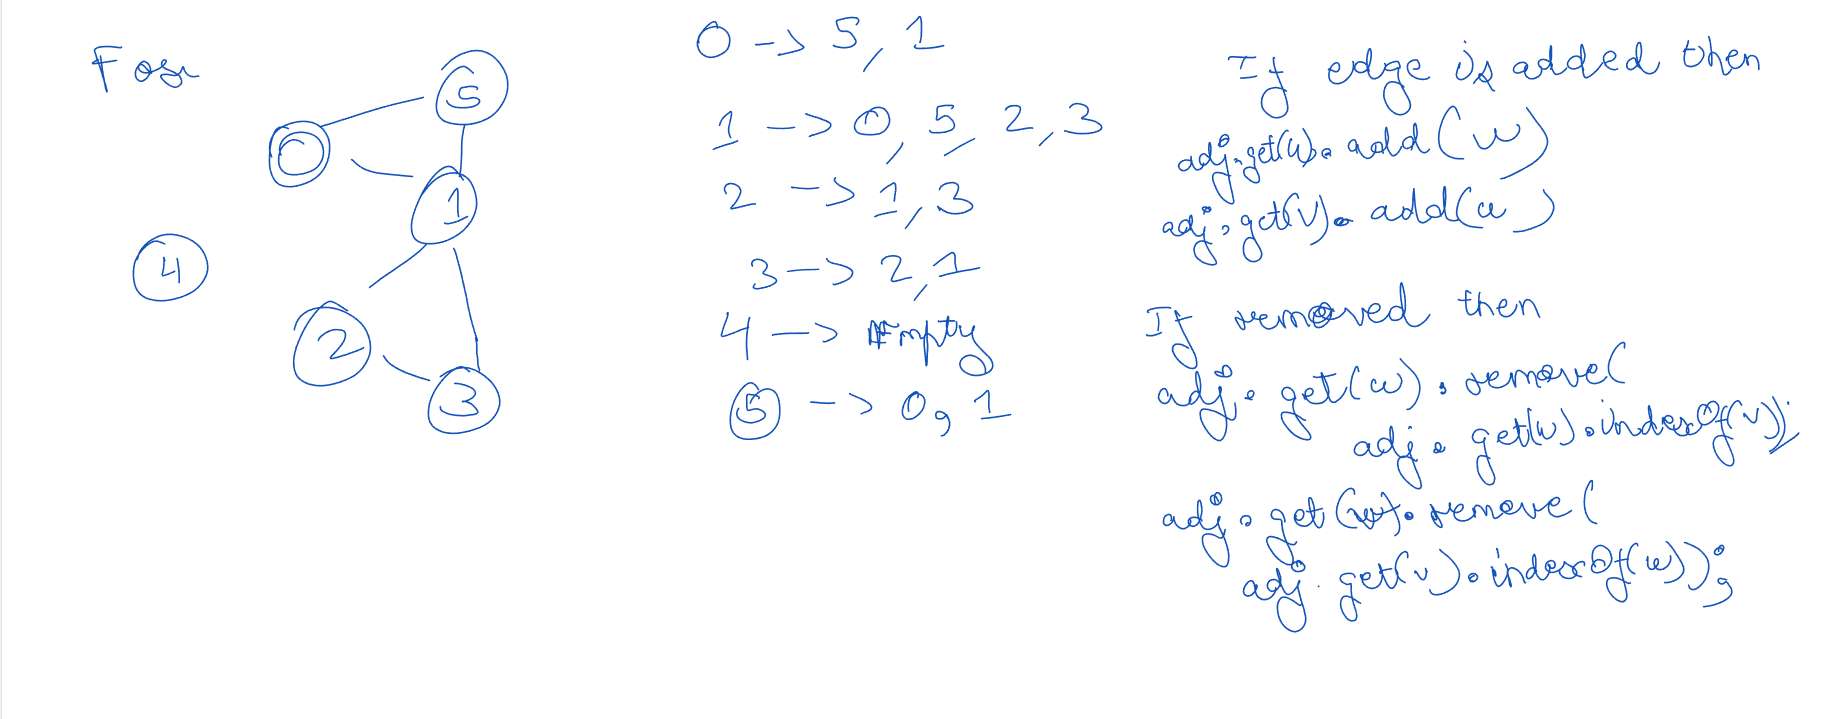 For
5
0
1
4
2
3
0 -> 5, 1
1 -> 0, 5, 2, 3
2 -> 1, 3
3 -> 2, 1
4 -> Empty
5 -> 0, 1
If edge is added then
adj.get(u).add(v)
adj.get(v).add(u)
If removed then
adj.get(u).remove(
adj.get(u).indexOf(v));
adj.get(v).remove(
adj.get(v).indexOf(u));